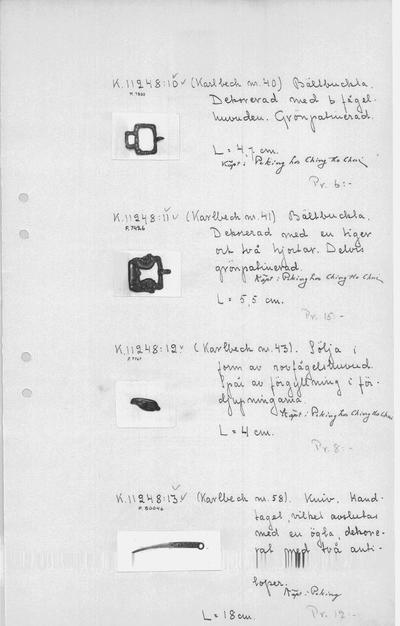 K.11248:10 (Karlbeck nr. 40) Bältbuckla.
Dekorerad med 6 fågel-
huvuden. Grönpatinerad.
L = 4,7 cm.
Köpt: Peking hos Ching Ho Chai
Pr. 6:-
K.11248:11 (Karlbeck nr. 41) Bältbuckla.
P. 7426
Dekorerad med en tiger
och två hjortar. Delvis
grönpatinerad.
Köpt: Peking hos Ching Ho Chai
L = 5,5 cm.
Pr. 15:-
K.11248:12 (Karlbeck nr. 43). Sölja i
form av rovfågelshuvud.
Spår av förgyllning i för-
djupningarna.
Köpt: Peking hos Ching Ho Chai
L = 4 cm.
Pr. 8:-
K.11248:13 (Karlbeck nr. 58). Kniv. Hand-
taget, vilket avslutas
med en ögla, dekore-
rat med två anti-
loper.
Köpt: Peking
L = 18 cm.
Pr. 12:-